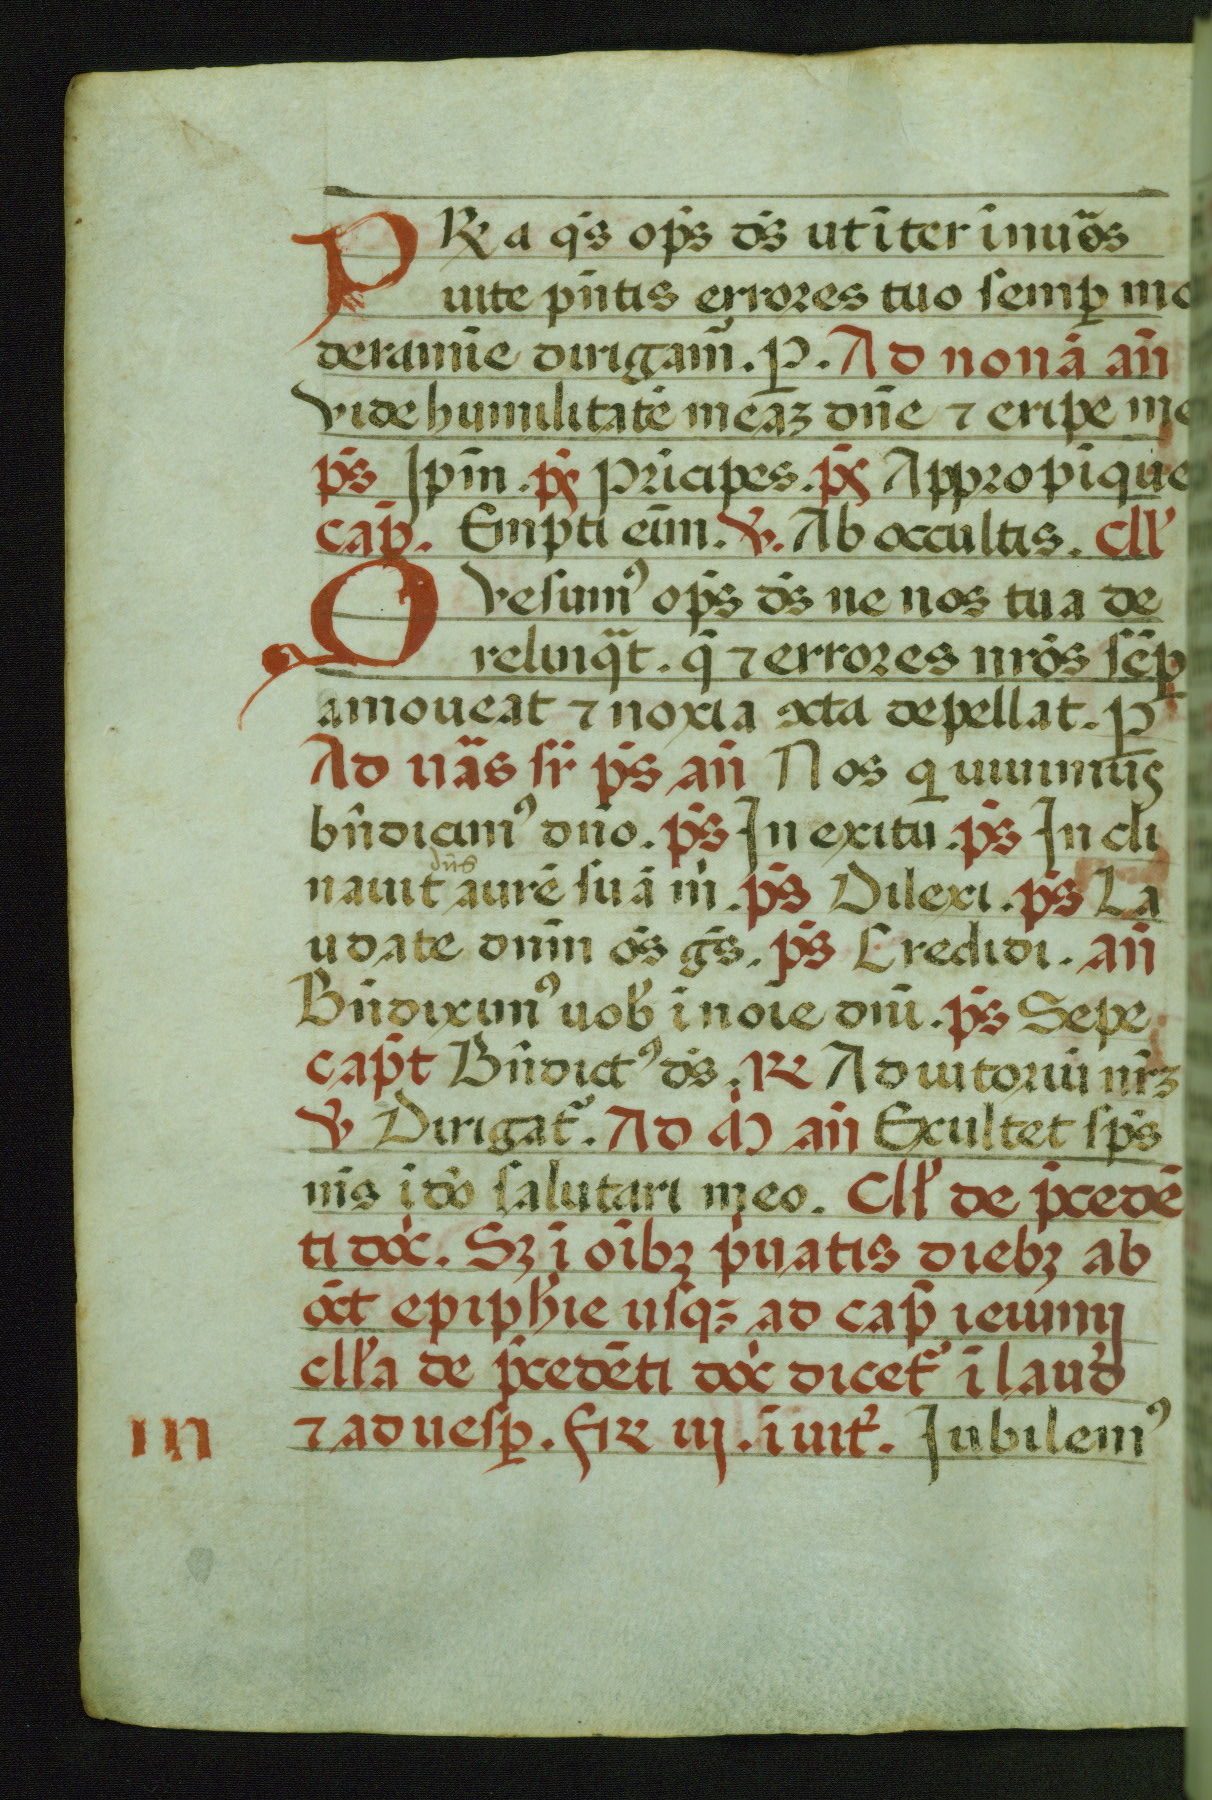 PRe a q̄s op̄s ds̄ ut iter inuōs
uite pn̄tis errores tuo semp̱ mo
deramīe dirigam̄. P. Ad nonā an̄
Vide humilitatē meaz dn̄e ⁊ eripe me
ps̄ Ipm̄. px̄ Prīcipes. px̄ Appropīque
cap̄. Empti eīm. V̄. Ab occultis. Cll'
Qvesum⁹ op̄s ds̄ ne nos tua de
relinqāt. q̄ ⁊ errores nrōs sēp̱
amoueat ⁊ noxia ꝯcta depellat. P
Ad uās sr̄ ps̄ an̄ Nos q uiuimus
bn̄dicim⁹ dn̄o. ps̄ In exitu. ps̄ Incli
nauit dn̄s aurē suā m̄. ps̄ Dilexi. ps̄ La
udate dnm̄ os̄ gs̄. ps̄ Credidi. an̄
Bn̄dixim⁹ uob' ī noīe dn̄i. ps̄ Sepe
cap̄t Bn̄dict⁹ ds̄. Re Adiutoriū nrz̄
V̄ Dirigat̄. Ad m̄ an̄ Exultet sps̄
m̄s ī dō salutari meo. Cll' de p̄cedē
ti dōc. Sz ī oībz p̄uatis diebz ab
oct̄ epiph'ie usqz ad cap̄ ieiunij
cll'a de p̄cedēti dōc dicet̄ ī laud̄
⁊ ad uesp̱. FiRe iij. īuit̄. Iubilem⁹
in